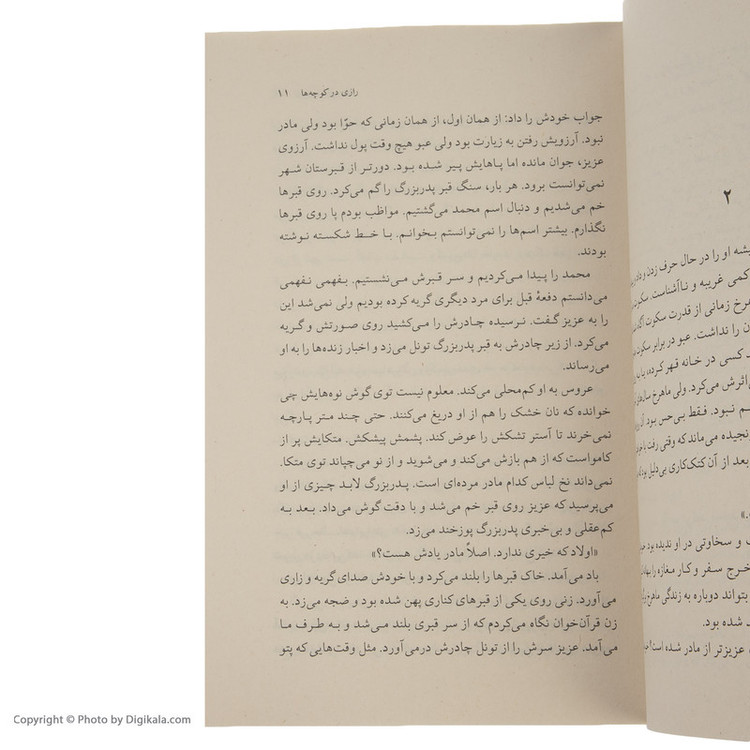 رازی در کوچه‌ها ۱۱
جواب خودش را داد: از همان اول، از همان زمانی که حوّا بود ولی مادر
نبود. آرزویش رفتن به زیارت بود ولی عبو هیچ وقت پول نداشت. آرزوی
عزیز، جوان مانده اما پاهایش پیر شده بود. دورتر از قبرستان شهر
نمی‌توانست برود. هر بار، سنگ قبر پدربزرگ را گم می‌کرد. روی قبرها
خم می‌شدیم و دنبال اسم محمد می‌گشتیم. مواظب بودم پا روی قبرها
نگذارم. بیشتر اسم‌ها را نمی‌توانستم بخوانم. با خط شکسته نوشته
بودند.
محمد را پیدا می‌کردیم و سر قبرش می‌نشستیم. بفهمی نفهمی
می‌دانستم دفعهٔ قبل برای مرد دیگری گریه کرده بودیم ولی نمی‌شد این
را به عزیز گفت. نرسیده چادرش را می‌کشید روی صورتش و گریه
می‌کرد. از زیر چادرش به قبر پدربزرگ تونل می‌زد و اخبار زنده‌ها را به او
می‌رساند.
عروس به او کم‌محلی می‌کند. معلوم نیست توی گوش نوه‌هایش چی
خوانده که نان خشک را هم از او دریغ می‌کنند. حتی چند متر پارچه
نمی‌خرند تا آستر تشکش را عوض کند. پشمش پیشکش. متکایش پر از
کامواست که از هم بازش می‌کند و می‌شوید و از نو می‌چپاند توی متکا.
نمی‌داند نخ لباس کدام مادر مرده‌ای است. پدربزرگ لابد چیزی از او
می‌پرسید که عزیز روی قبر خم می‌شد و با دقت گوش می‌داد. بعد به
کم‌عقلی و بی‌خبری پدربزرگ پوزخند می‌زد.
«اولاد که خیری ندارد. اصلاً مادر یادش هست؟»
باد می‌آمد. خاک قبرها را بلند می‌کرد و با خودش صدای گریه و زاری
می‌آورد. زنی روی یکی از قبرهای کناری پهن شده بود و ضجه می‌زد. به
زن قرآن‌خوان نگاه می‌کردم که از سر قبری بلند می‌شد و به طرف ما
می‌آمد. عزیز سرش را از تونل چادرش درمی‌آورد. مثل وقت‌هایی که پتو
۲
او را در حال حرف زدن و
کمی غریبه و ناآشناست.
زمانی از قدرت سکوت
را نداشت. عبو در برابر
کسی در خانه قهر کرده
اثرش می‌کرد. ولی ماهرخ
نبود. فقط بی‌حس بود
نجیده می‌ماند که وقتی رفت
بعد از آن کتک‌کاری بی‌دلیل
.»
و سخاوتی در او ندیده بود
خرج سفر و کار مغازه را
بتواند دوباره به زندگی ماهرخ
شده بود.
عزیزتر از مادر شده است!
Copyright © Photo by Digikala.com